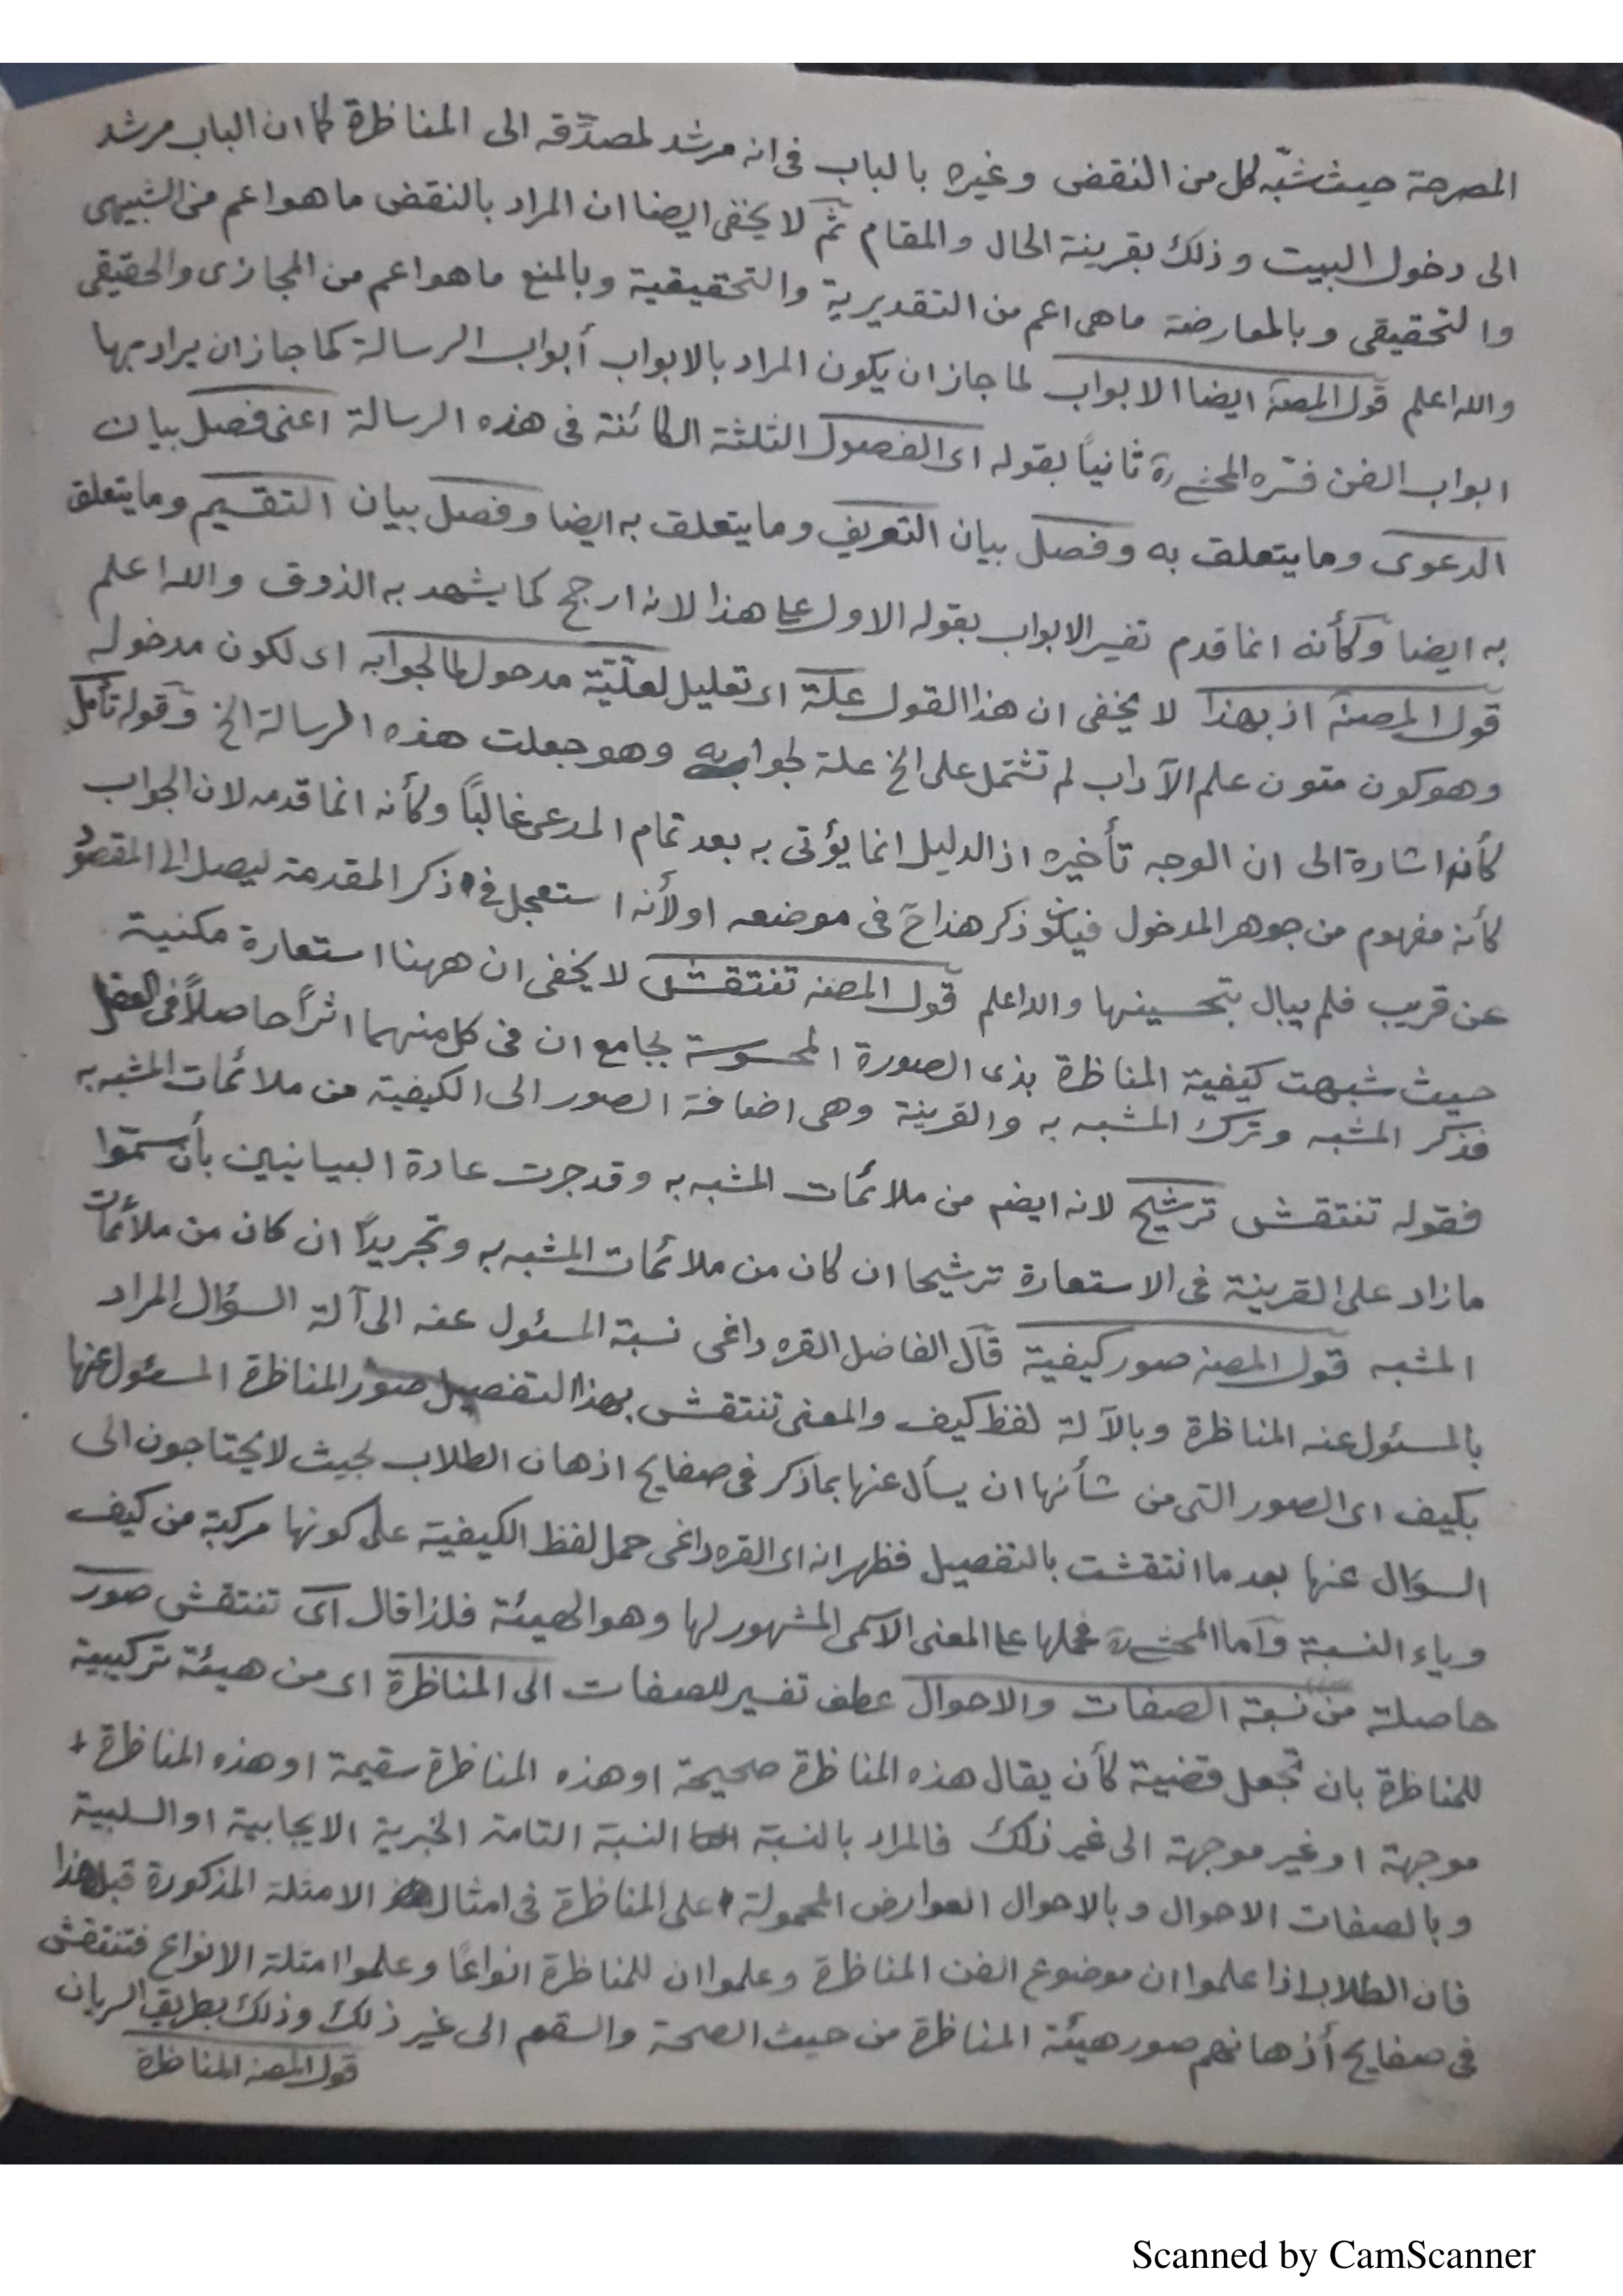 المصرحة حيث شبّه كل من النقض وغيره بالباب فى انه مرشد لمصدّقه الى المناظرة كما ان الباب مرشد
الى دخول البيت وذلك بقرينة الحال والمقام ثم لا يخفى ايضا ان المراد بالنقض ما هو اعم من الشبيهى
والتحقيقى وبالمعارضة ما هى اعم من التقديرية والتحقيقية وبالمنع ما هو اعم من المجازى والحقيقى
والله اعلم قول المصنف ايضا الابواب لما جاز ان يكون المراد بالابواب أبواب الرسالة كما جاز ان يراد بها
ابواب الفن فسّره المحشى ره ثانياً بقوله اى الفصول الثلثة الكائنة فى هذه الرسالة اعنى فصل بيان
الدعوى وما يتعلق به وفصل بيان التعريف وما يتعلق به ايضا وفصل بيان التقسيم وما يتعلق
به ايضا وكأنه انما قدم تفسير الابواب بقوله الاول على هذا لانه ارجح كما يشهد به الذوق والله اعلم
قول المصنف اذ بهذا لا يخفى ان هذا القول علة اى تعليل لعلّيّة مدحول لما لجوابه اى لكون مدخوله
وهو كون متون علم الآداب لم تشتمل على الخ علة لجوابه وهو جعلت هذه الرسالة الخ وقوله تأمل
كأنه اشارة الى ان الوجه تأخيره اذ الدليل انما يؤتى به بعد تمام المدعى غالباً وكأنه انما قدمه لان الجواب
كأنه مفهوم من جوهر المدخول فيكون ذكر هذا ح فى موضعه او لأنه استعجل فى ذكر المقدمة ليصل الى المقصود
عن قريب فلم يبال بتحسينها والله اعلم قول المصنف تنتقش لا يخفى ان ههنا استعارة مكنية
حيث شبهت كيفية المناظرة بذى الصورة المحسوسة بجامع ان فى كل منهما اثراً حاصلاً فى العقل
فذكر المشبه وترك المشبه به والقرينة وهى اضافة الصور الى الكيفية من ملائمات المشبه به
فقوله تنتقش ترشيح لانه ايضا من ملائمات المشبه به وقد جرت عادة البيانيين بأن سمّوا
ما زاد على القرينة فى الاستعارة ترشيحا ان كان من ملائمات المشبه به وتجريداً ان كان من ملائمات
المشبه قول المصنف صور كيفية قال الفاضل القره داغى نسبة المسئول عنه الى آلة السؤال المراد
بالمسئول عنه المناظرة وبالآلة لفظ كيف والمعنى تنتقش بهذا التفصيل صور المناظرة المسئول عنها
بكيف اى الصور التى من شأنها ان يسأل عنها بما ذكر فى صفايح اذهان الطلاب بحيث لا يحتاجون الى
السؤال عنها بعد ما انتقشت بالتفصيل فظهر انه اى القره داغى حمل لفظ الكيفية على كونها مركبة من كيف
وياء النسبة وأما المحشى ره فحملها على المعنى الاسمى المشهور لها وهو الهيئة فلذا قال اى تنتقش صور
حاصلة من نسبة الصفات والاحوال عطف تفسير للصفات الى المناظرة اى من هيئة تركيبية
للمناظرة بان تجعل قضية كأن يقال هذه المناظرة صحيحة او هذه المناظرة سقيمة او هذه المناظرة
موجهة او غير موجهة الى غير ذلك فالمراد بالنسبة النسبة التامة الخبرية الايجابية او السلبية
وبالصفات الاحوال وبالاحوال العوارض المحمولة على المناظرة فى امثال الامثلة المذكورة قبل هذا
فان الطلاب اذا علموا ان موضوع الفن المناظرة وعلموا ان للمناظرة انواعاً وعلموا امثلة الانواع فتنتقش
فى صفايح أذهانهم صور هيئة المناظرة من حيث الصحة والسقم الى غير ذلك وذلك بطريق السريان
قول المصنف المناظرة
Scanned by CamScanner